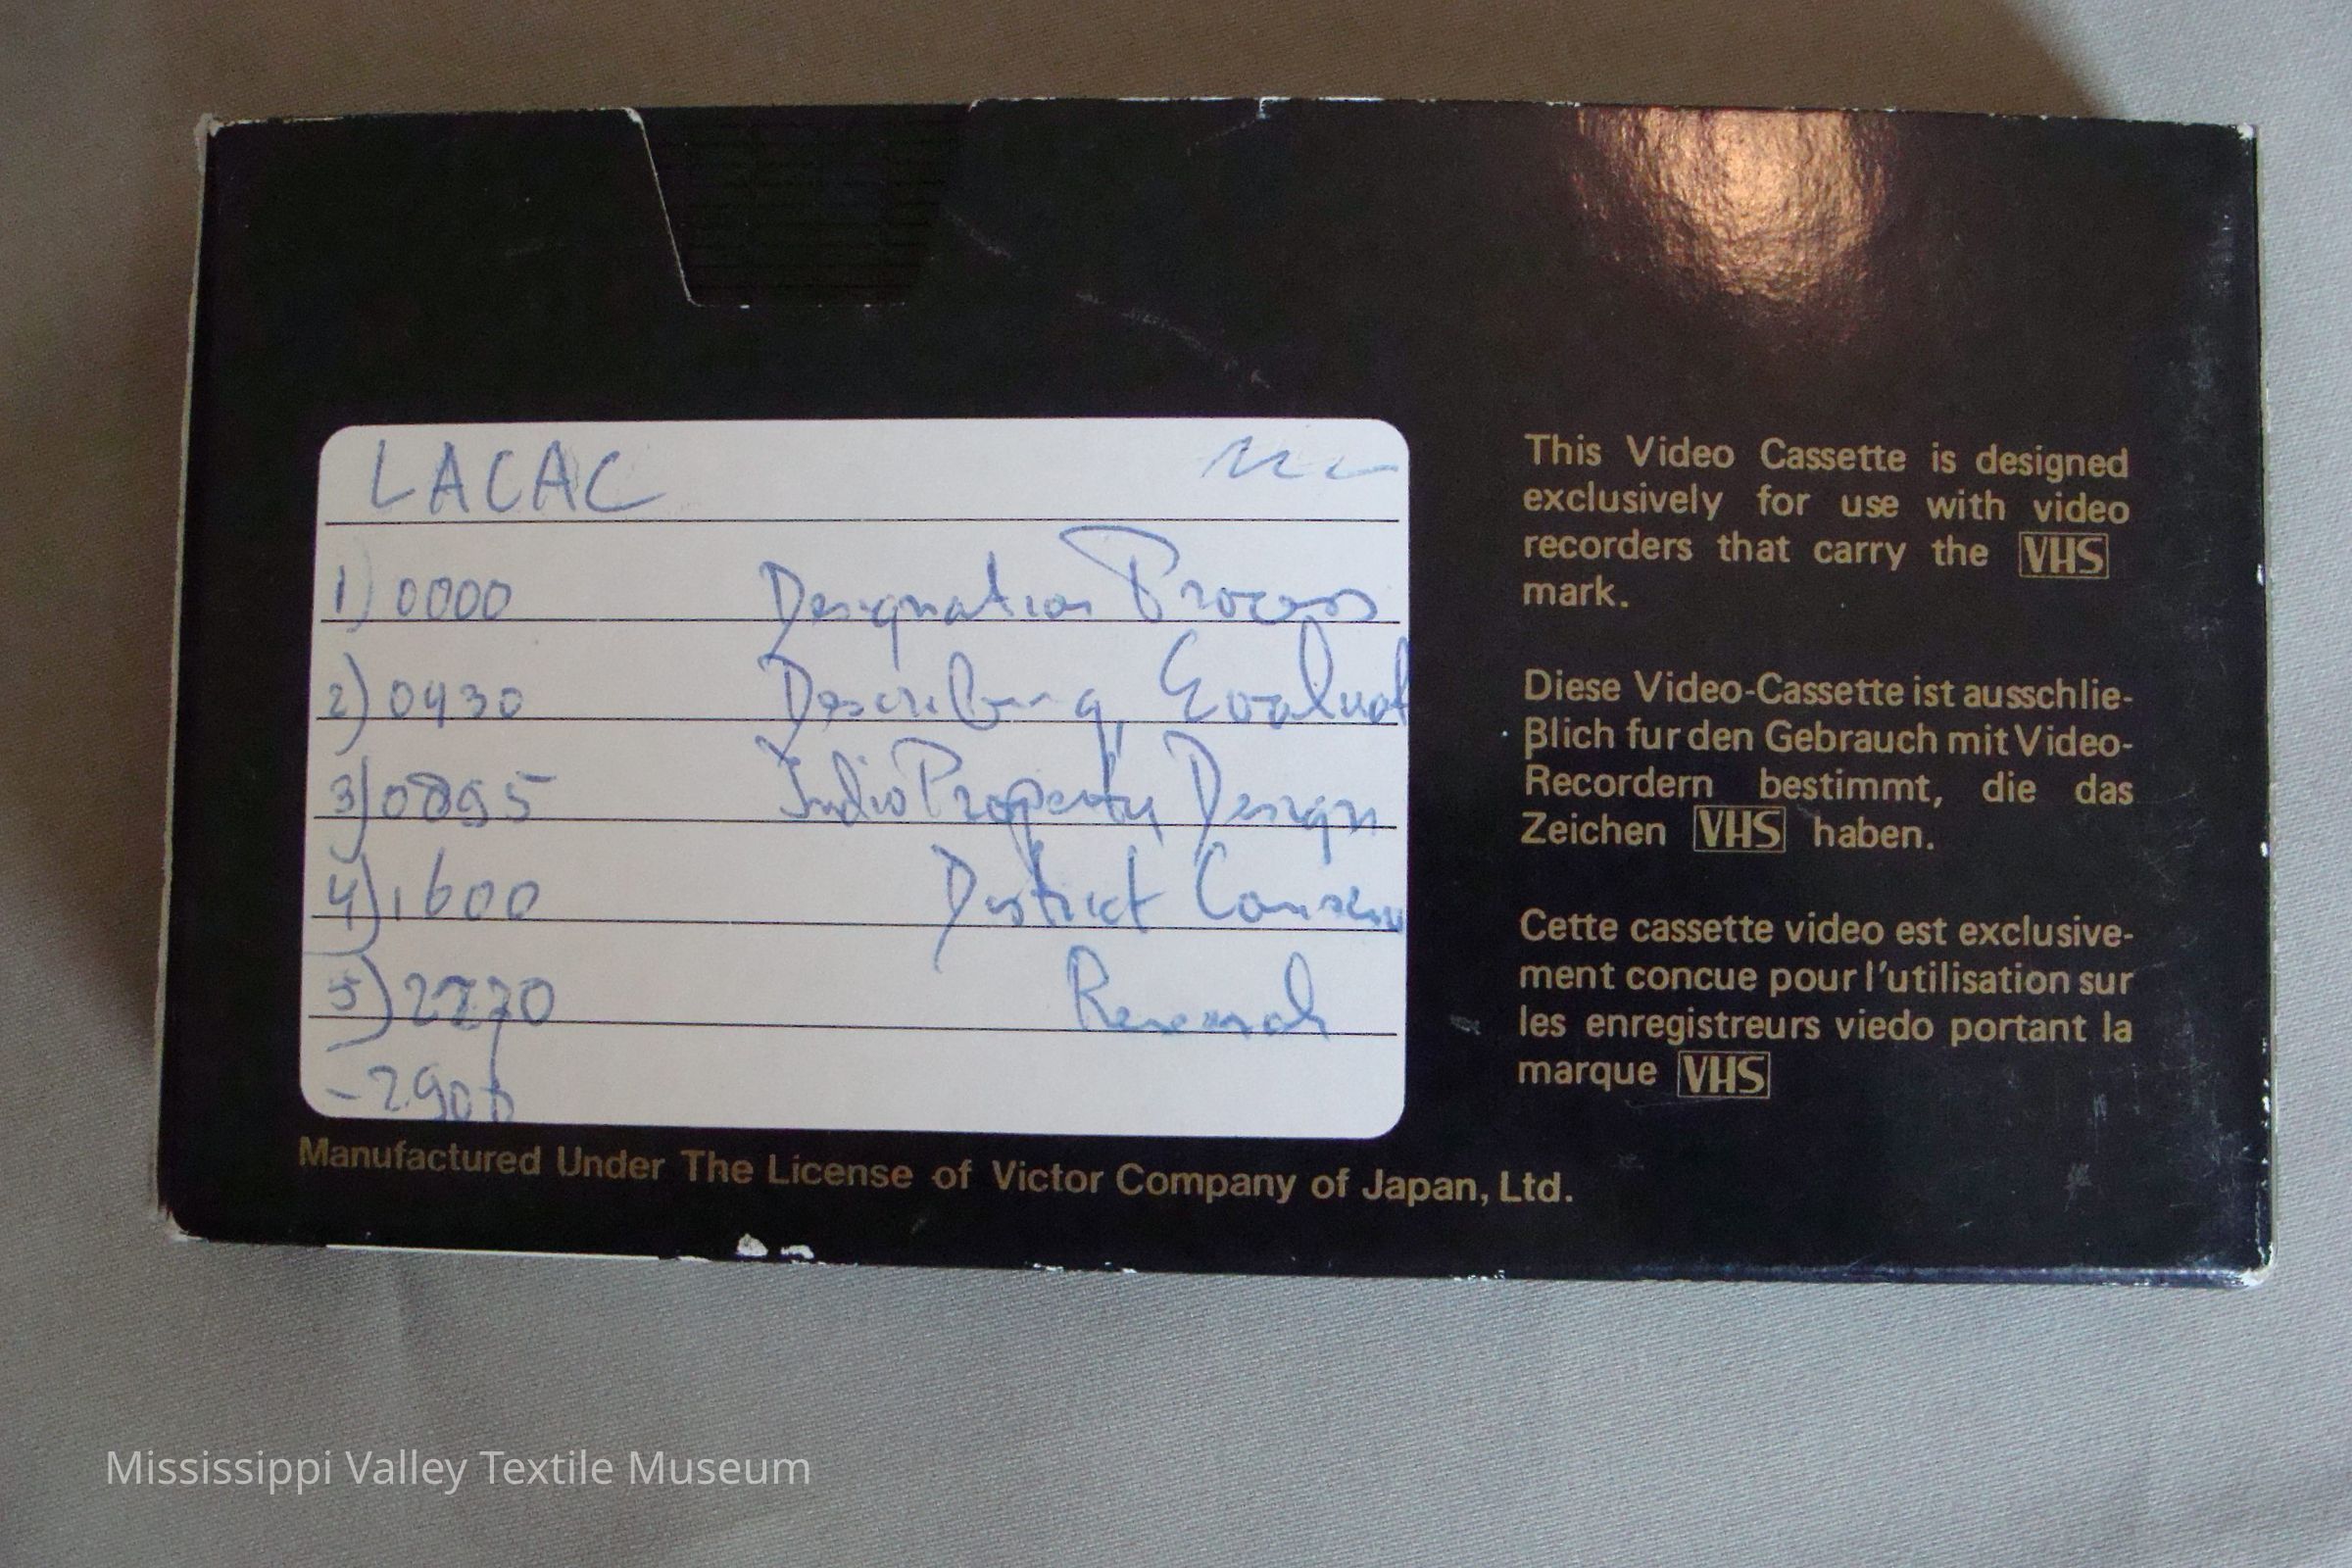 LACAC
1) 0000 Designation Process
2) 0430 Describing, Evaluat
3) 0895 Property Design
4) 1600 District Conserv
5) 2270 Research
- 2900
Manufactured Under The License of Victor Company of Japan, Ltd.
This Video Cassette is designed
exclusively for use with video
recorders that carry the VHS
mark.
Diese Video-Cassette ist ausschlie-
βlich fur den Gebrauch mit Video-
Recordern bestimmt, die das
Zeichen VHS haben.
Cette cassette video est exclusive-
ment concue pour l'utilisation sur
les enregistreurs viedo portant la
marque VHS
Mississippi Valley Textile Museum